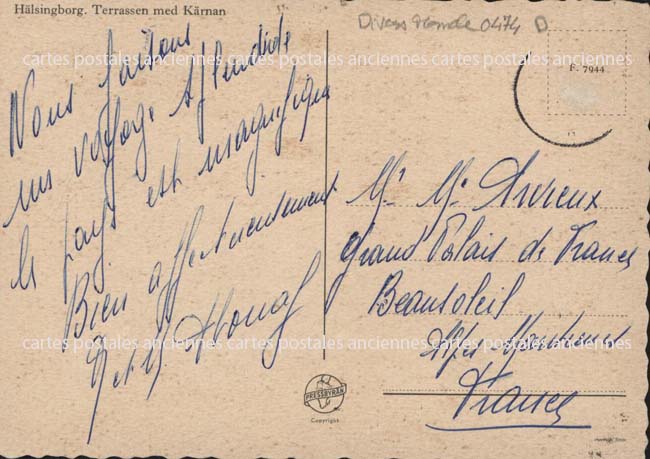 Hälsingborg. Terrassen med Kärnan
Divers Monde 0474 D
F. 7944
Nous faisons
un voyage splendide
le pays est magnifique
Bien affectueusement
Mr Me
Grand Palais de France
Beausoleil
Alpes-Maritimes
France
PRESSBYRÅN
Copyright
cartes postales anciennes cartes postales anciennes cartes postales anciennes
cartes postales anciennes cartes postales anciennes cartes postales anciennes
cartes postales anciennes cartes postales anciennes cartes postales anciennes